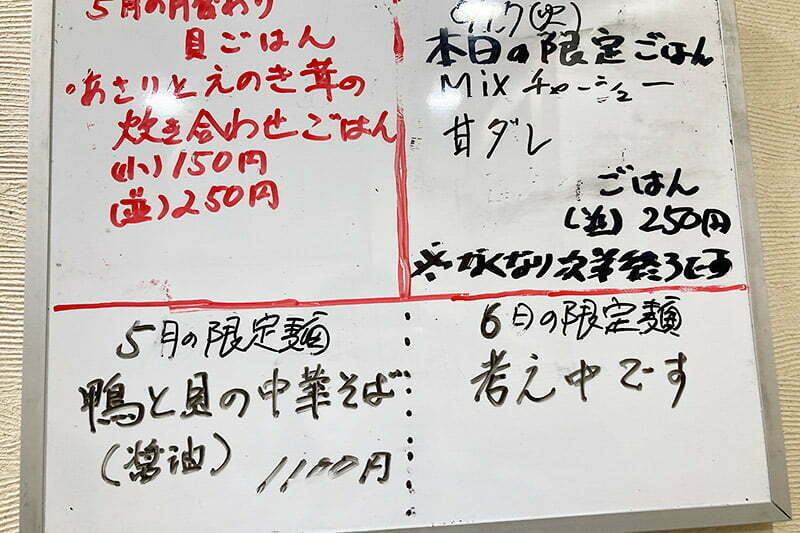 5月の月替わり
貝ごはん
・あさりとえのき茸の
炊き合わせごはん
(小)150円
(並)250円
(火)
本日の限定ごはん
Mixチャーシュー
甘ダレ
ごはん
(並)250円
※なくなり次第終了です
5月の限定麺
鴨と貝の中華そば
(醤油) 1100円
6月の限定麺
考え中です